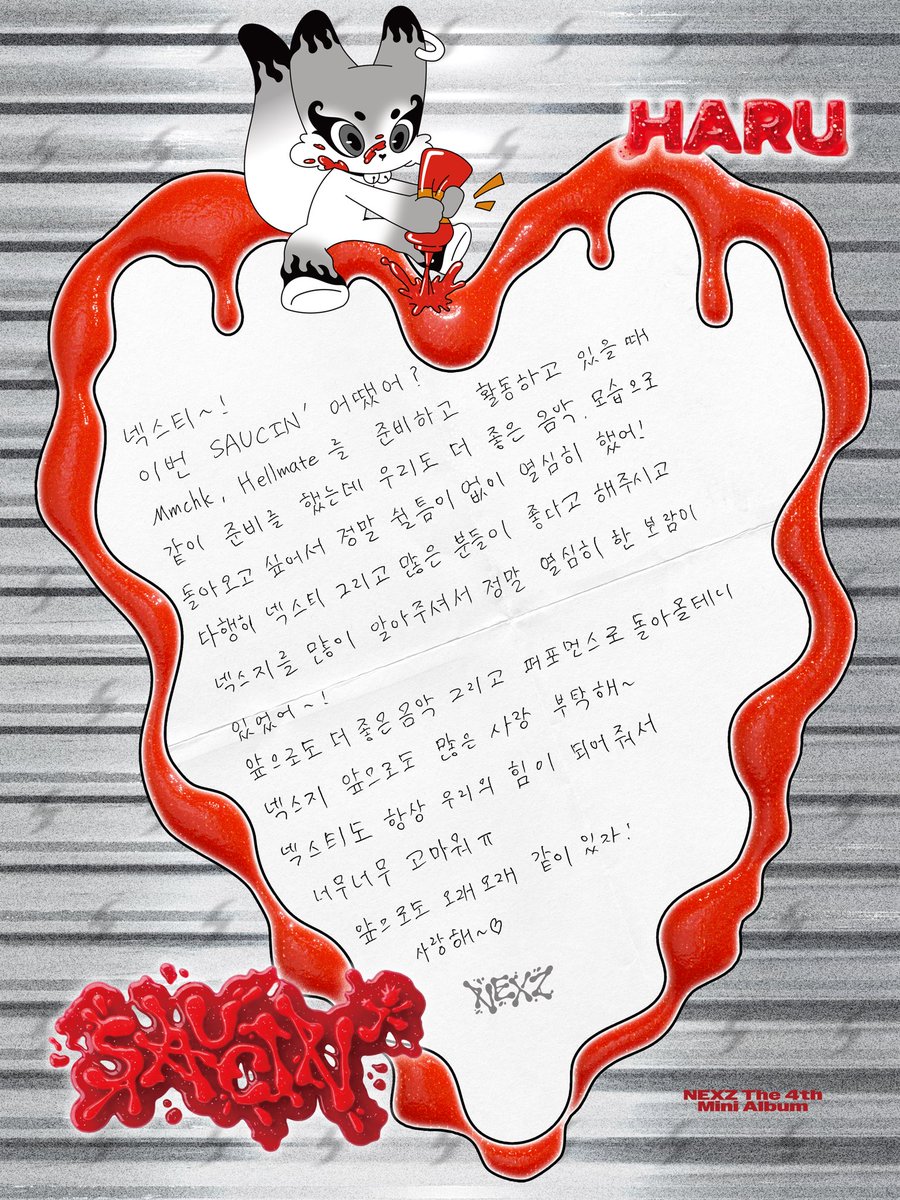 HARU
넥스티~!
이번 SAUCIN' 어땠어?
Mmchk, Hellmate를 준비하고 활동하고 있을때
같이 준비를 했는데 우리도 더 좋은 음악, 모습으로
돌아오고 싶어서 정말 쉴틈이 없이 열심히 했어!
다행히 넥스티 그리고 많은 분들이 좋다고 해주시고
넥스지를 많이 알아주셔서 정말 열심히 한 보람이
있었어~!
앞으로도 더 좋은 음악 그리고 퍼포먼스로 돌아올테니
넥스지 앞으로도 많은 사랑 부탁해~
넥스티도 항상 우리의 힘이 되어줘서
너무너무 고마워ㅠ
앞으로도 오래오래 같이 있자!
사랑해~♡
NEXZ
SAUCIN'
NEXZ The 4th
Mini Album